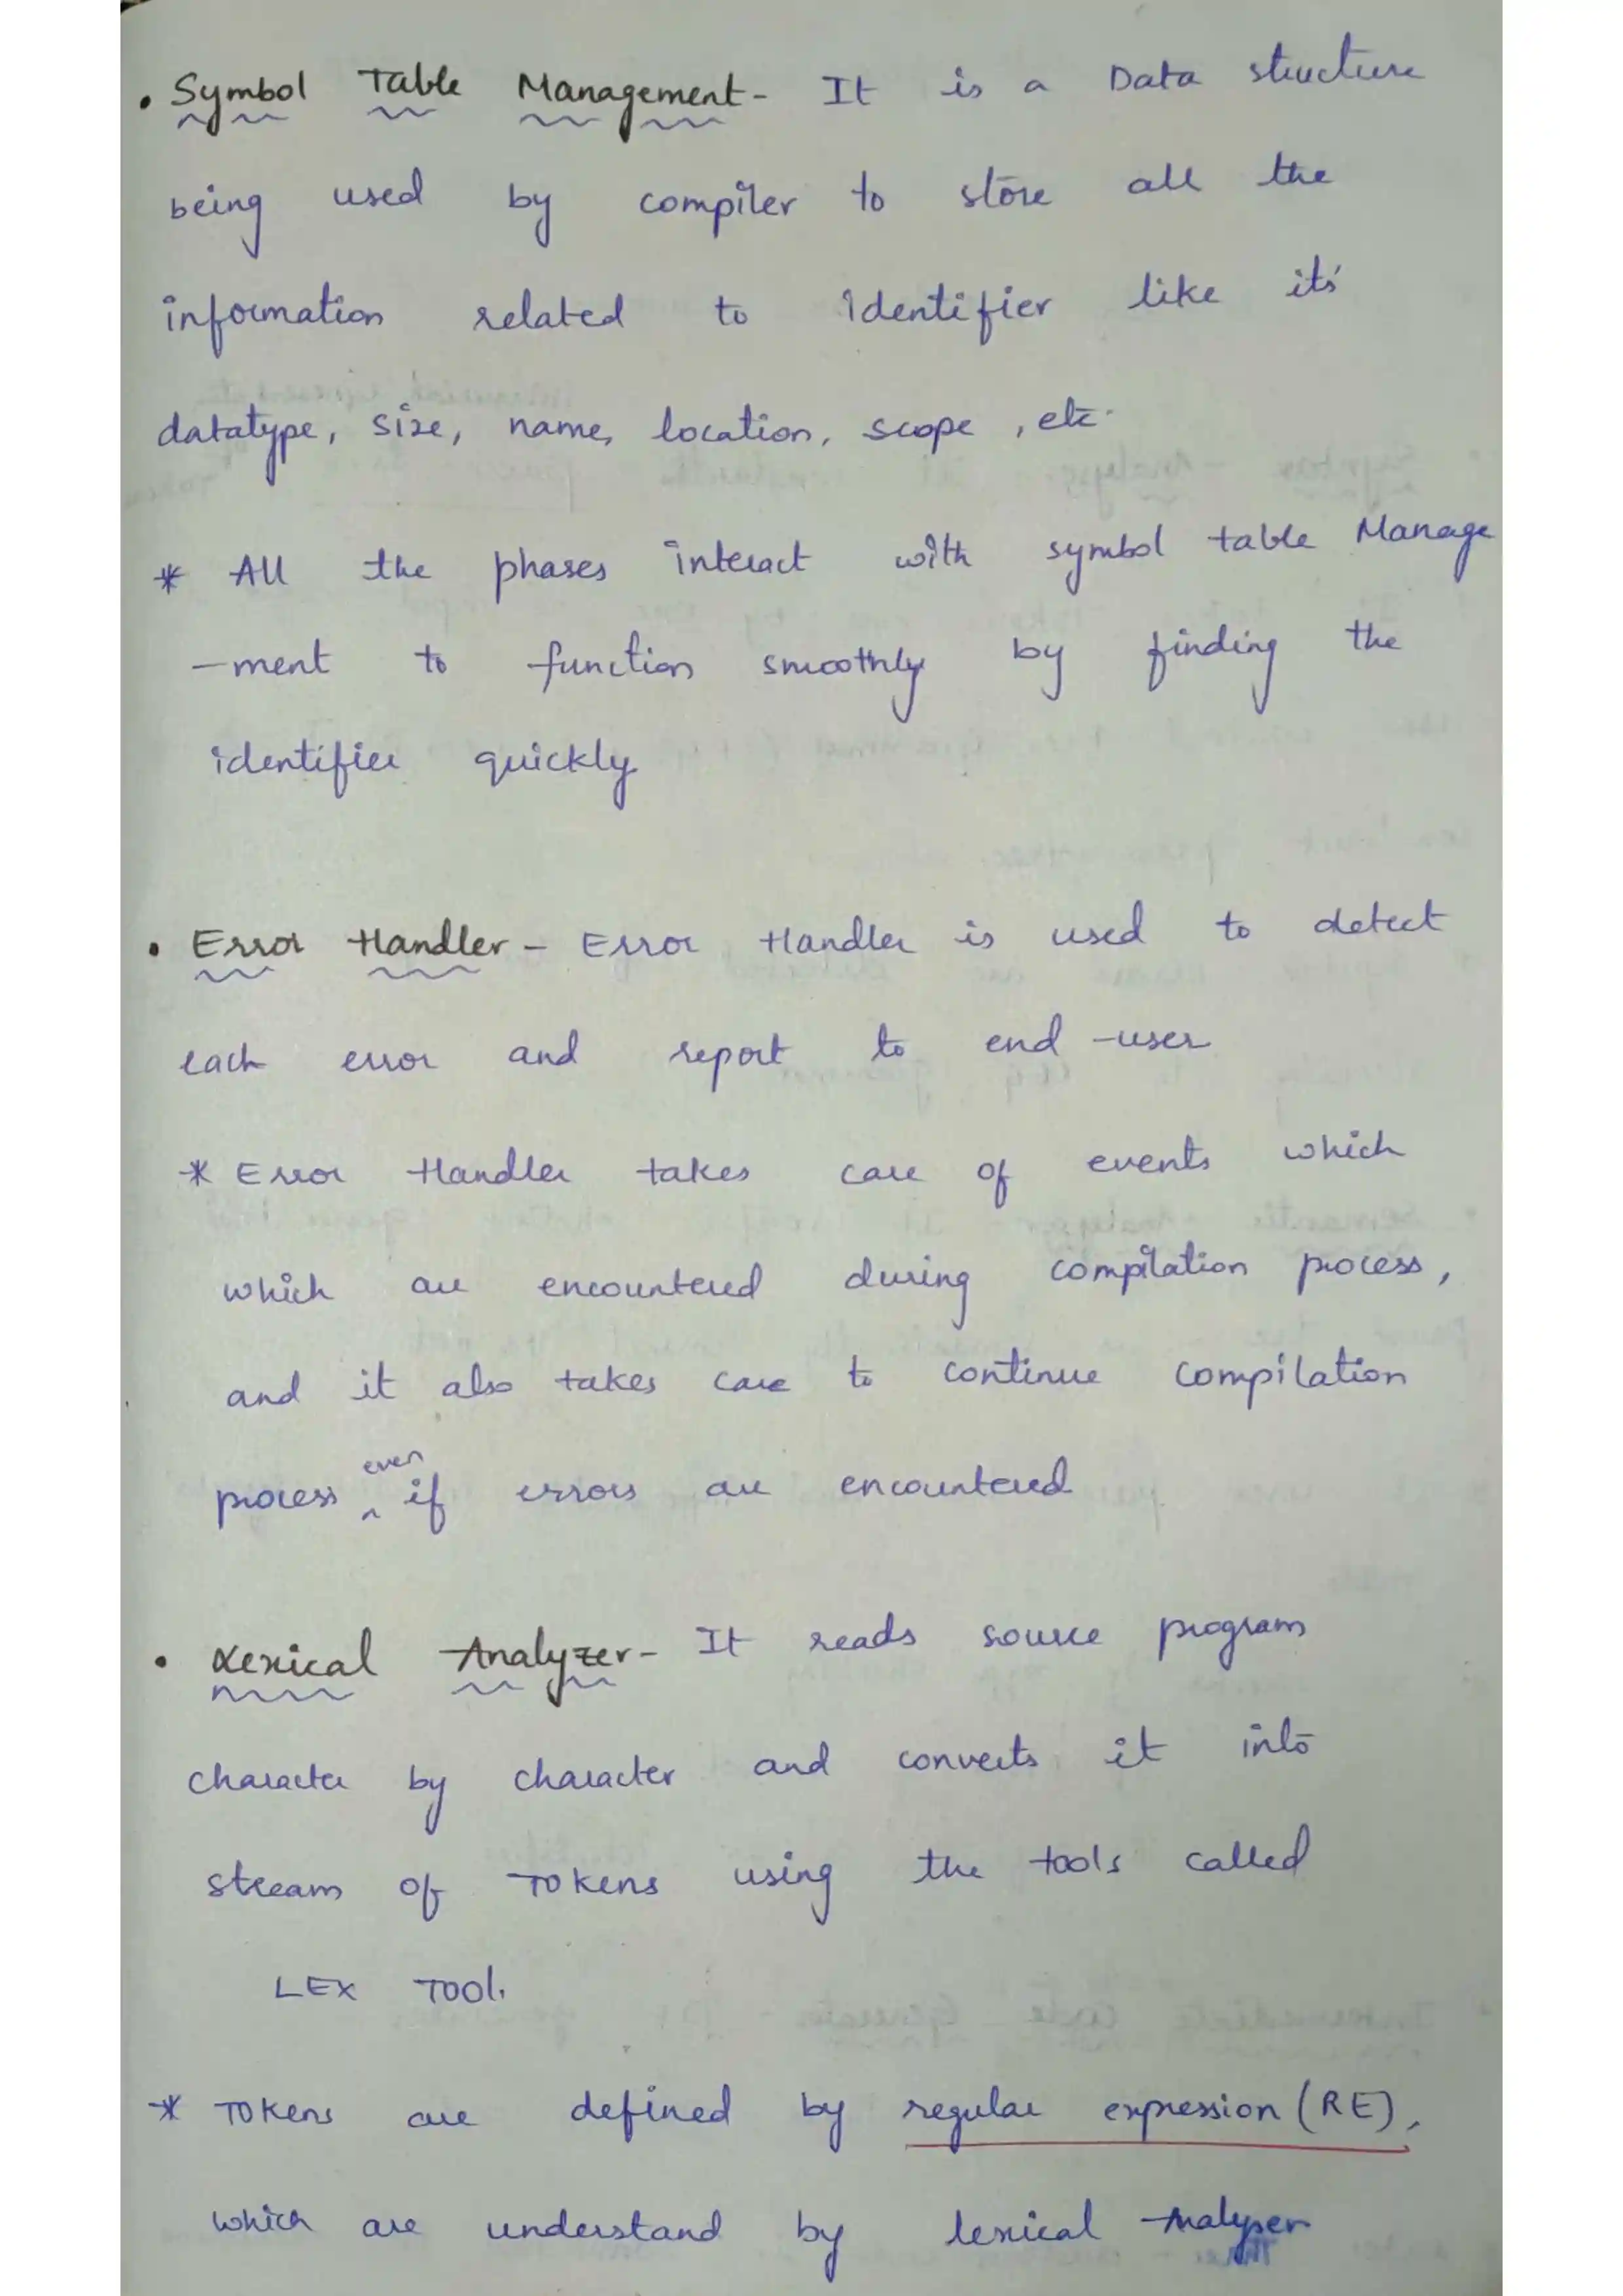 • Symbol Table Management - It is a Data structure
being used by compiler to store all the
information related to identifier like its'
datatype, size, name, location, scope, etc.
* All the phases interact with symbol table Manage
-ment to function smoothly by finding the
identifier quickly
• Error Handler - Error Handler is used to detect
each error and report to end-user
* Error Handler takes care of events which
which are encountered during compilation process,
and it also takes care to continue compilation
process even if errors are encountered
• Lexical Analyzer - It reads source program
character by character and converts it into
stream of Tokens using the tools called
LEX Tool.
* Tokens are defined by regular expression (RE),
which are understand by lexical Analyser